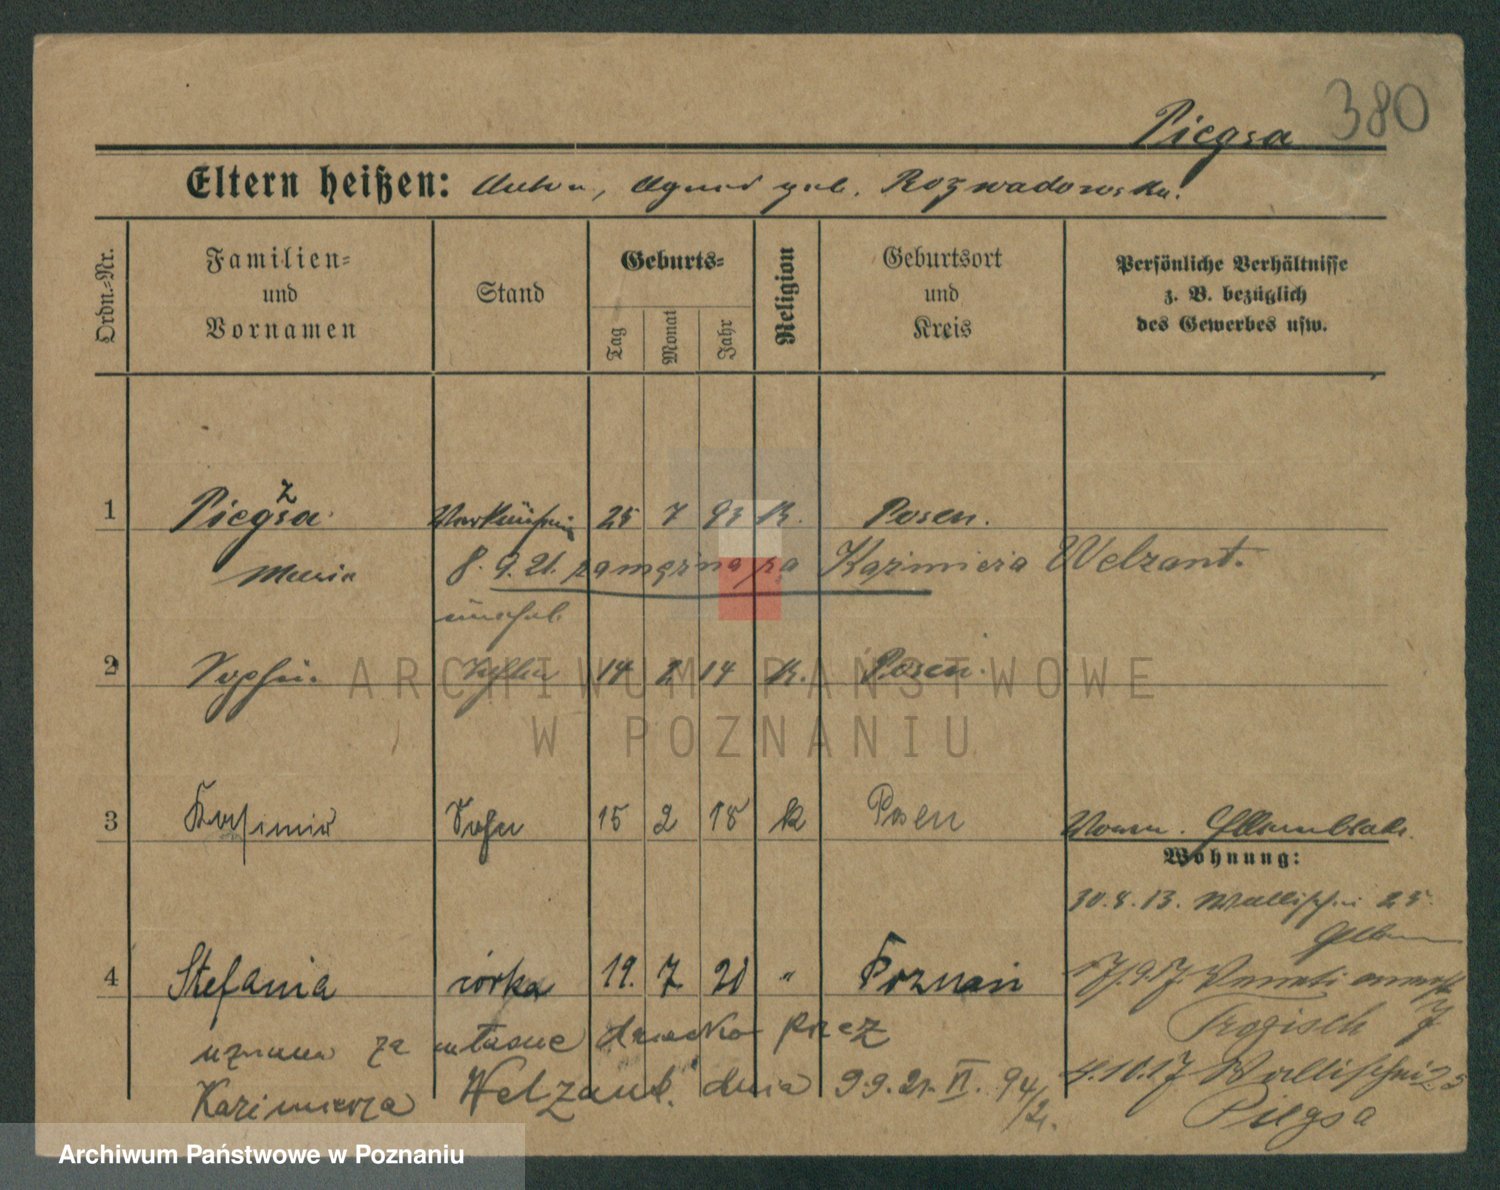 380
Piegsa
Eltern heißen: Anton, Agnes geb. Rozwadowska.
Ordn.=Nr.
Familien= und Vornamen
Stand
Geburts=
Tag
Monat
Jahr
Religion
Geburtsort und Kreis
Persönliche Verhältnisse
z. B. bezüglich
des Gewerbes usw.
1 Piegsa ż Verkäuferin 25 7 93 k. Posen.
Maria 8. 9. 21. zamężna za Kazimierza Welzant.
unehel.
2 Sophie. Tochter 14 2 14 k. Posen.
3 Kasimir Sohn 15 2 18 k Posen
Wohnung:
30.8.13. Wallischei 25.
4 Stefania córka 19. 7. 20 " Poznań
17.9.17. Venetianerstr 7
Trogisch
uznana za własne dziecko przez
4.10.17 Wallischei 25
Kazimierza Welzant. dnia 9.9.21. VI. 94/21.
Piegsa
ARCHIWUM PAŃSTWOWE
W POZNANIU
Archiwum Państwowe w Poznaniu